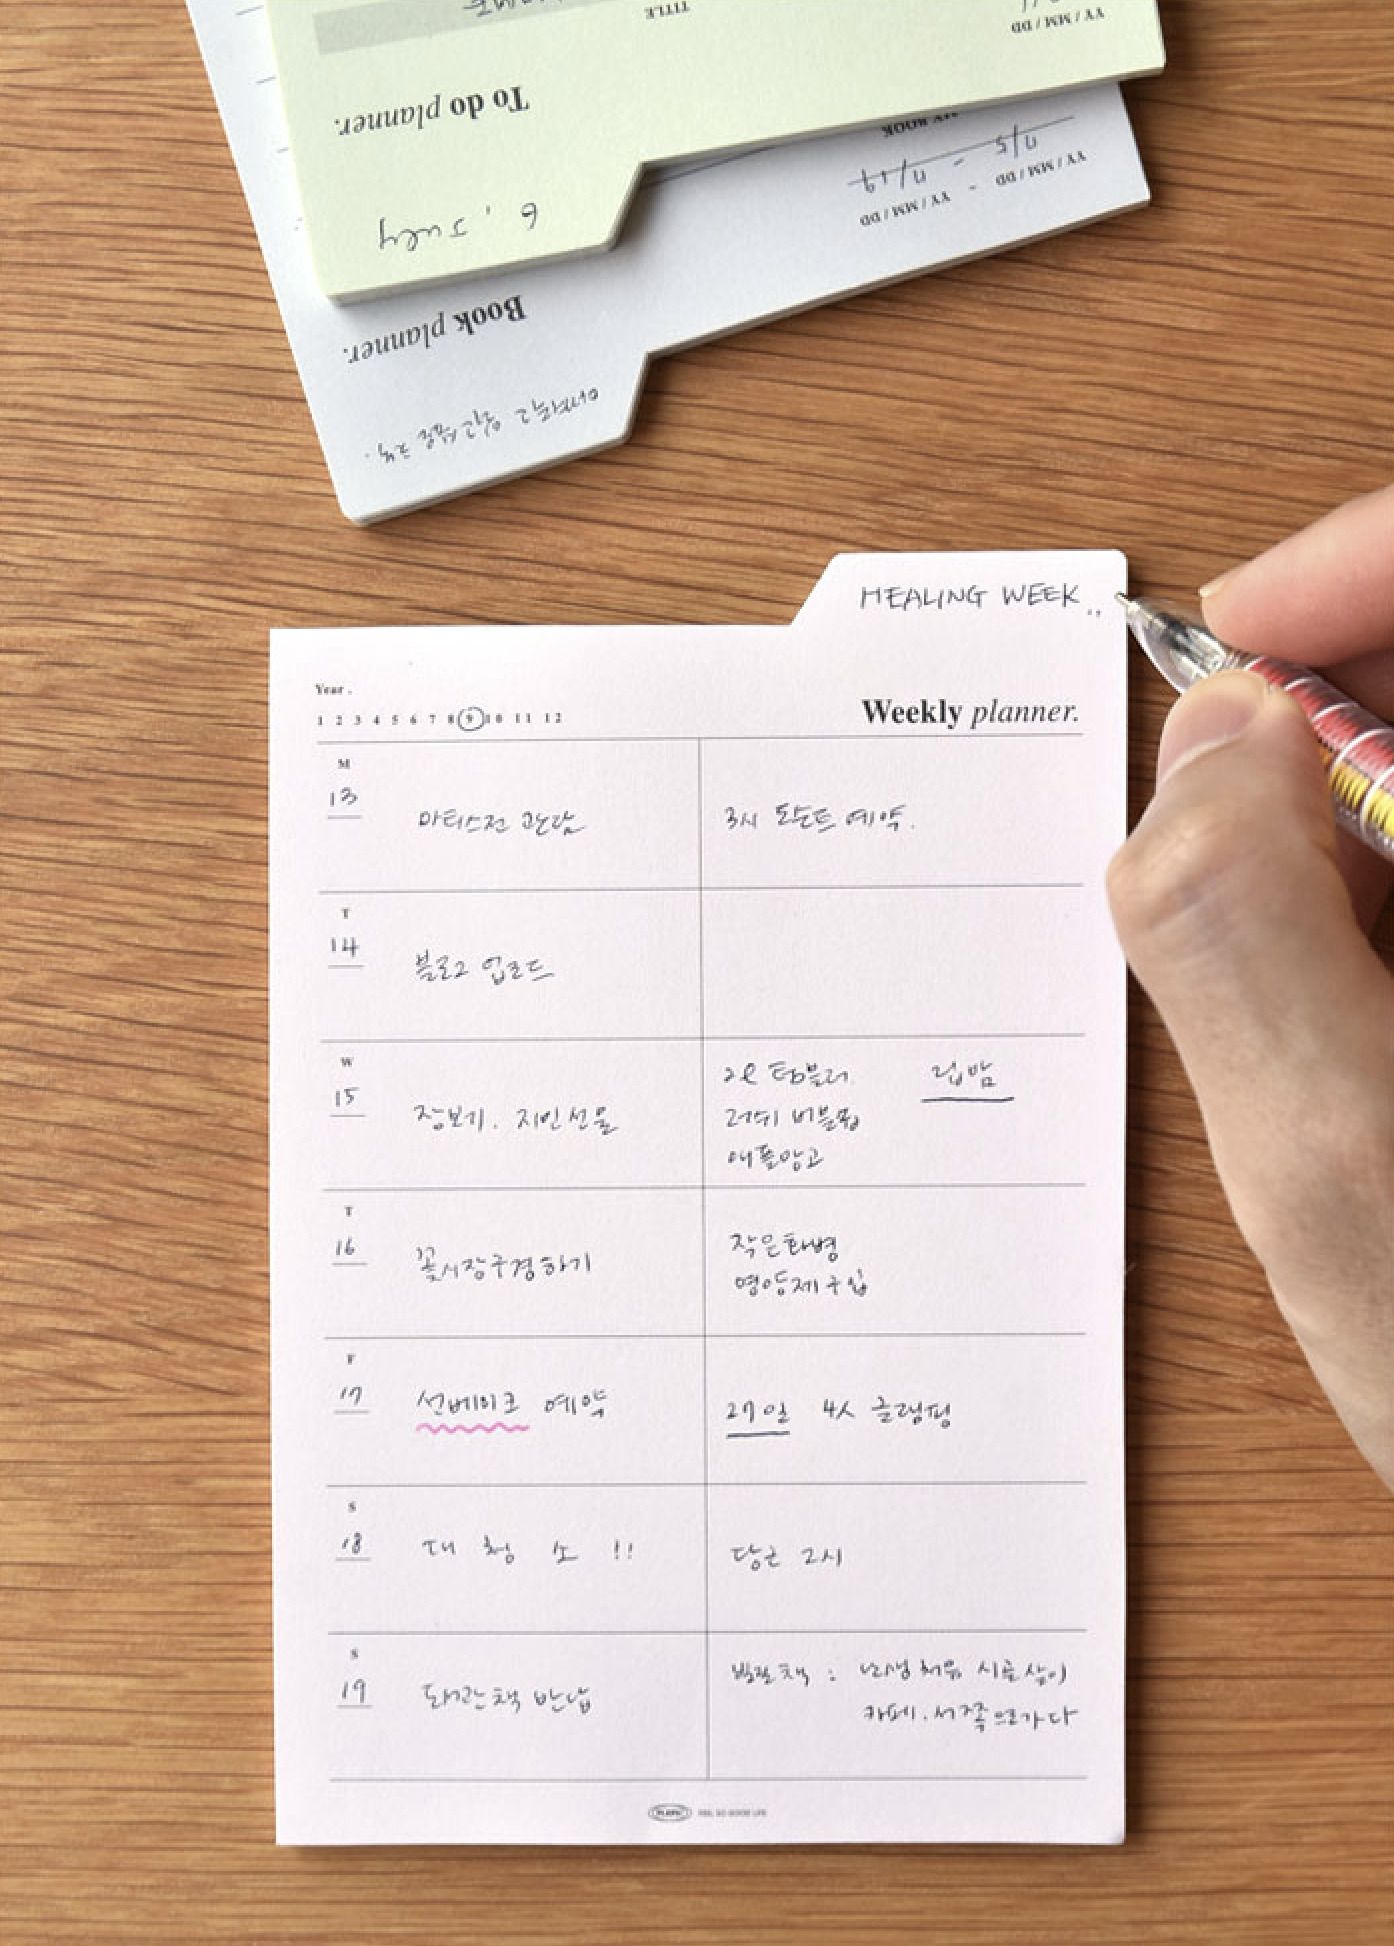 TITLE
YY / MM / DD
To do planner.
6, July
MY BOOK
11/5 - 11/19
YY / MM / DD - YY / MM / DD
Book planner.
HEALING WEEK ..
Year .
1 2 3 4 5 6 7 8 9 10 11 12
Weekly planner.
M
13
마티스전 관람
3시 도슨트 예약.
T
14
블로그 업로드
W
15
장보기. 지인선물
2ℓ 텀블러
립밤
러쉬 버블밤
애플망고
T
16
꽃시장구경하기
작은화병
영양제구입
F
17
선베이크 예약
27일 4人 글램핑
S
18
대 청 소 !!
당근 2시
S
19
도서관책 반납
빌릴책 : 난생처음 시골살이
카페, 서쪽으로가다
FEEL SO GOOD LIFE